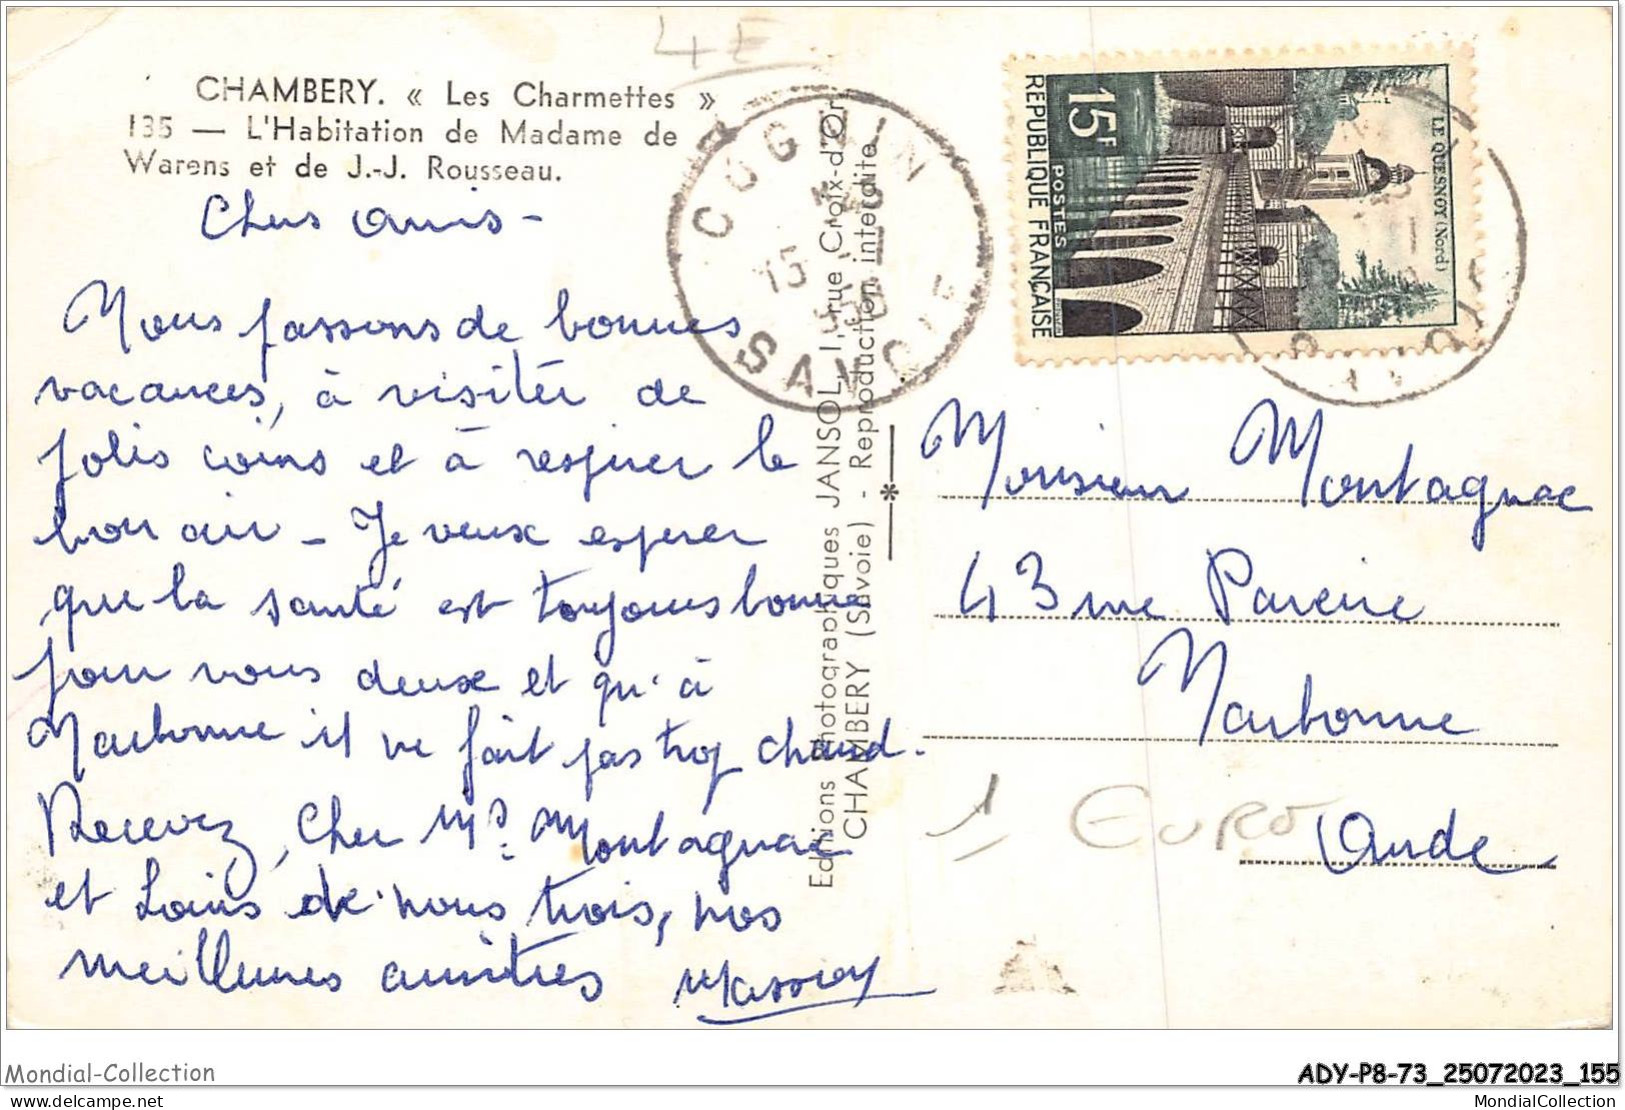 4 E
CHAMBERY. « Les Charmettes »
135 — L'Habitation de Madame de
Warens et de J.-J. Rousseau.
Chers amis -
Nous passons de bonnes
vacances, à visiter de
jolis coins et à respirer le
bon air - Je veux esperer
que la santé est toujours bonne
pour vous deux et qu'à
Narbonne il ne fait pas trop chaud.
Recevez, cher Mr Montagnac
et de nous trois, nos
meilleures amitiés
COGNIN
15
SAVOIE
Editions Photographiques JANSOL, 1, rue Croix-d'Or
CHAMBERY (Savoie) - Reproduction interdite
15F
POSTES
REPUBLIQUE FRANÇAISE
LE QUESNOY (Nord)
Monsieur Montagnac
43 rue Pareire
Narbonne
Aude
1 EURO
Mondial-Collection
ADY-P8-73_25072023_155
delcampe.net
MondialCollection